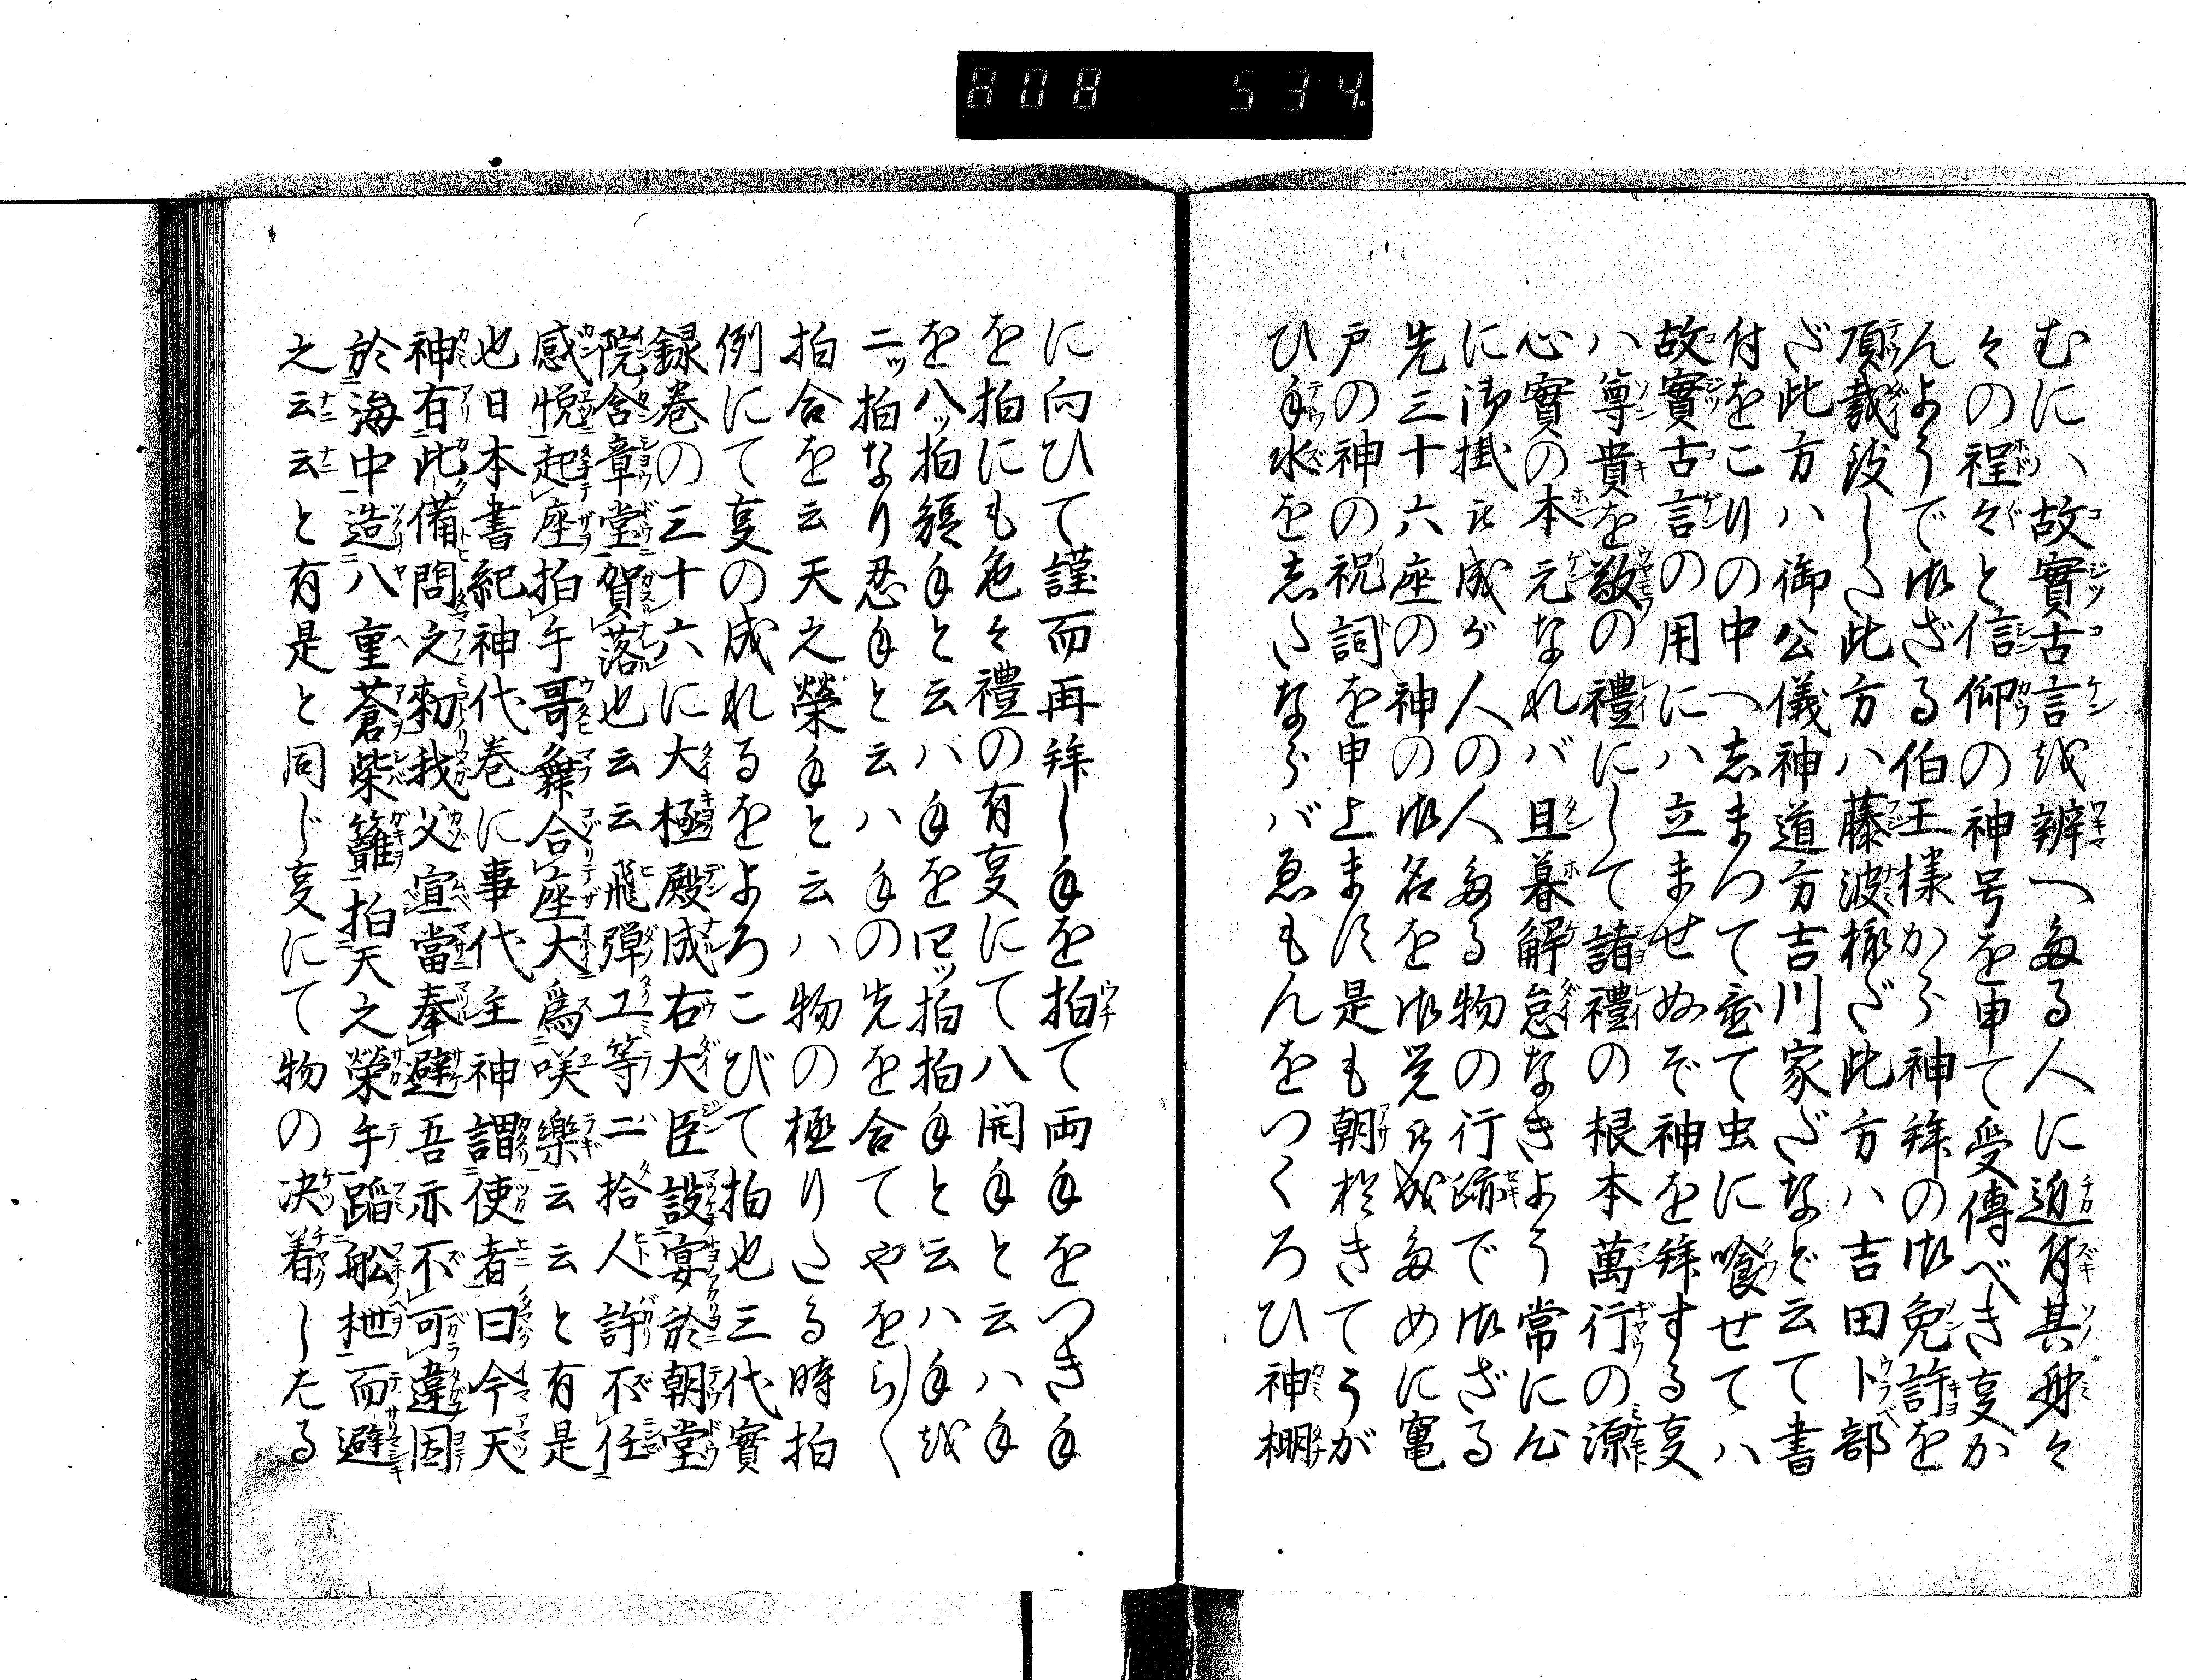 808 534.
むにハ故實古言を辨へたる人に近付其身々
々の程々と信仰の神号を申て受傳べき事か
んようで御ざる伯王様から神拜の御免許を
頂戴致した此方ハ藤波様だ此方ハ吉田卜部
だ此方ハ御公儀神道方吉川家だなど云て書
付をこりの中へ志まつて置て虫に喰せてハ
故實古言の用にハ立ませぬぞ神を拜する事
ハ尊貴を敬の禮にして諸禮の根本萬行の源
心實の本元なれバ旦暮解怠なきよう常に心
に御掛被成が人の人たる物の行跡で御ざる
先三十六座の神の御名を御覚被成ために竃
戸の神の祝詞を申上ます是も朝起きてうが
ひ手水を志たならバゑもんをつくろひ神棚
に向ひて謹而再拜し手を拍て両手をつき手
を拍にも色々禮の有事にて八開手と云ハ手
を八ッ拍短手と云ハ手を四ッ拍拍手と云ハ手を
二ッ拍なり忍手と云ハ手の先を合てやをら〱
拍合を云天之榮手と云ハ物の極りたる時拍
例にて事の成れるをよろこびて拍也三代實
録巻の三十六に大極殿成右大臣設宴於朝堂
院含章堂賀落也云云飛彈工等二拾人許不任
感悦起座拍手哥舞合座大爲咲樂云云と有是
也日本書紀神代巻に事代主神謂使者曰今天
神有此備問之勅我父宣當奉避吾亦不可違因
於海中造八重蒼柴籬拍天之榮手蹈船枻而避
之云云と有是と同じ事にて物の決着したる